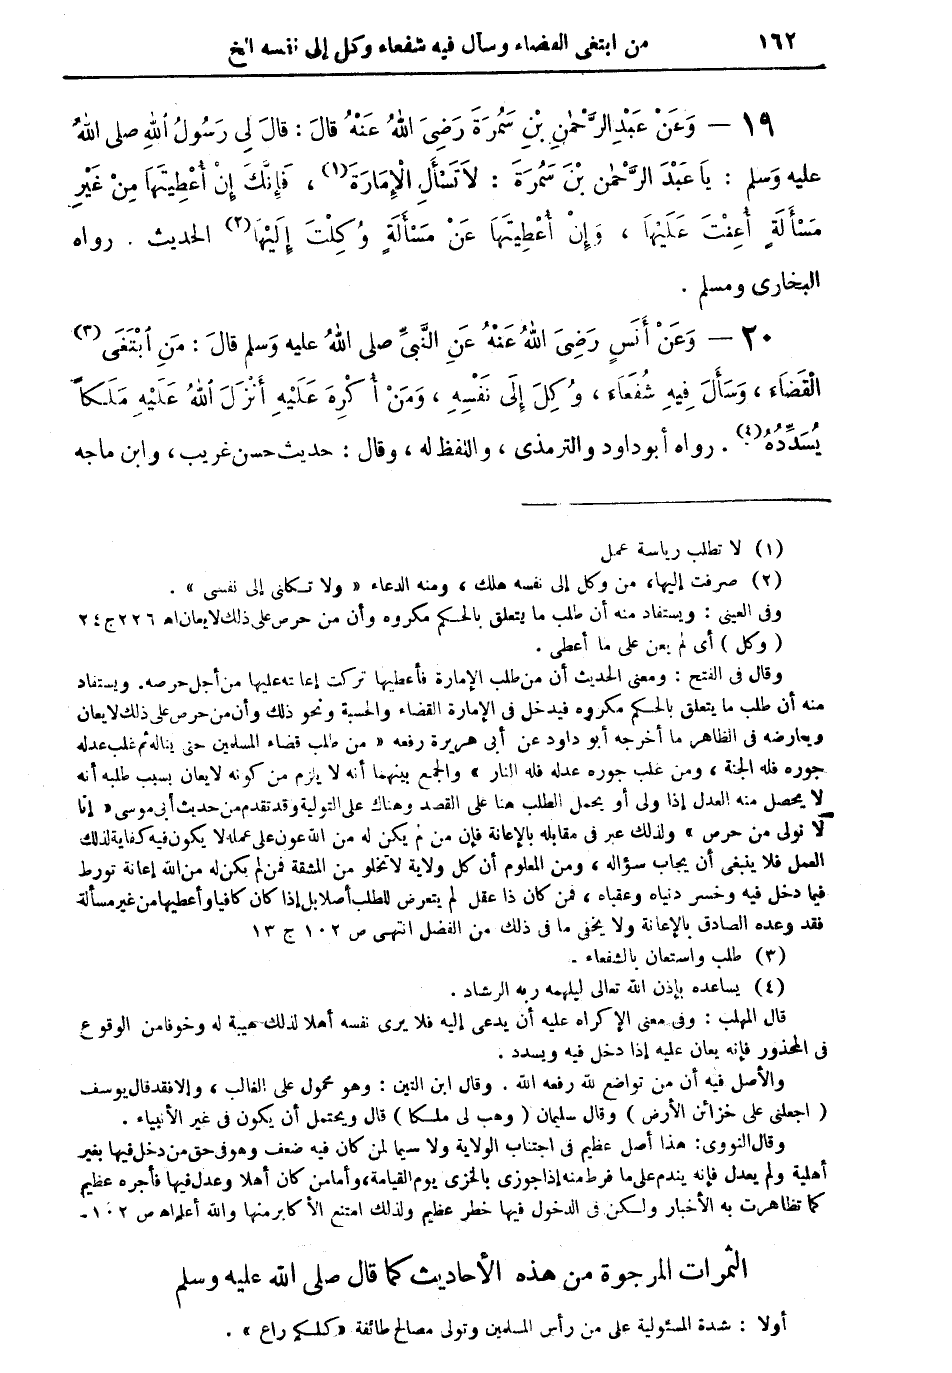 ١٦٢ من ابتغى القضاء وسأل فيه شفعاء وكل إلى نفسه الخ
١٩ — وَعَنْ عَبْدِ الرَّحْمٰنِ بْنِ سَمُرَةَ رَضِىَ اللهُ عَنْهُ قالَ : قالَ لِى رَسُولُ اللهِ صلى اللهُ
عليه وَسلم : يا عَبْدَ الرَّحْمٰنِ بْنَ سَمُرَةَ : لاَ تَسْأَلِ الْإِمَارَةَ(١) ، فَإِنَّكَ إِنْ أُعْطِيتَهَا مِنْ غَيْرِ
مَسْأَلَةٍ أُعِنْتَ عَلَيْهَا ، وَإِنْ أُعْطِيتَهَا عَنْ مَسْأَلَةٍ وُكِلْتَ إِلَيْهَا(٢) الحديث . رواه
البخارى ومسلم .
٢٠ — وَعَنْ أَنَسٍ رَضِىَ اللهُ عَنْهُ عَنِ النَّبِىِّ صلى اللهُ عليه وَسلم قالَ : مَنِ ابْتَغَى(٣)
الْقَضَاءَ ، وَسَأَلَ فِيهِ شُفَعَاءَ ، وُكِلَ إِلَى نَفْسِهِ ، وَمَنْ أُكْرِهَ عَلَيْهِ أَنْزَلَ اللهُ عَلَيْهِ مَلَكاً
يُسَدِّدُهُ(٤) . رواه أبو داود والترمذى ، واللفظ له ، وقال : حديث حسن غريب ، وابن ماجه
(١) لا تطلب رياسة عمل
(٢) صرفت إليها، من وكل إلى نفسه هلك ، ومنه الدعاء « ولا تكلنى إلى نفسى » .
وفى العينى : ويستفاد منه أن طلب ما يتعلق بالحكم مكروه وأن من حرص على ذلك لا يعان اه ٢٢٦ ج ٢٤
( وكل ) أى لم يعن على ما أعطى .
وقال فى الفتح : ومعنى الحديث أن من طلب الإمارة فأعطيها تركت إعانته عليها من أجل حرصه. ويستفاد
منه أن طلب ما يتعلق بالحكم مكروه فيدخل فى الإمارة القضاء والحسبة ونحو ذلك وأن من حرص على ذلك لا يعان
ويعارضه فى الظاهر ما أخرجه أبو داود عن أبى هريرة رفعه « من طلب قضاء المسلمين حتى يناله ثم غلب عدله
جوره فله الجنة ، ومن غلب جوره عدله فله النار » والجمع بينهما أنه لا يلزم من كونه لا يعان بسبب طلبه أنه
لا يحصل منه العدل إذا ولى أو يحمل الطلب هنا على القصد وهناك على التولية وقد تقدم من حديث أبى موسى « إنا
لا نولى من حرص » ولذلك عبر فى مقابله بالإعانة فإن من لم يكن له من الله عون على عمله لا يكون فيه كفاية لذلك
العمل فلا ينبغى أن يجاب سؤاله ، ومن المعلوم أن كل ولاية لا تخلو من المشقة فمن لم يكن له من الله إعانة تورط
فيما دخل فيه وخسر دنياه وعقباه ، فمن كان ذا عقل لم يتعرض للطلب أصلا بل إذا كان كافيا وأعطيها من غير مسألة
فقد وعده الصادق بالإعانة ولا يخفى ما فى ذلك من الفضل انتهى ص ١٠٢ ج ١٣
(٣) طلب واستعان بالشفعاء .
(٤) يساعده بإذن الله تعالى ليلهمه ربه الرشاد .
قال المهلب : وفى معنى الإكراه عليه أن يدعى إليه فلا يرى نفسه أهلا لذلك هيبة له وخوفا من الوقوع
فى المحذور فإنه يعان عليه إذا دخل فيه ويسدد .
والأصل فيه أن من تواضع لله رفعه الله . وقال ابن التين : وهو محمول على الغالب ، وإلا فقد قال يوسف
( اجعلنى على خزائن الأرض ) وقال سليمان ( وهب لى ملكا ) قال ويحتمل أن يكون فى غير الأنبياء .
وقال النووى: هذا أصل عظيم فى اجتناب الولاية ولا سيما لمن كان فيه ضعف وهو فى حق من دخل فيها بغير
أهلية ولم يعدل فإنه يندم على ما فرط منه إذا جوزى بالخزى يوم القيامة، وأما من كان أهلا وعدل فيها فأجره عظيم
كما تظاهرت به الأخبار ولكن فى الدخول فيها خطر عظيم ولذلك امتنع الأكابر منها والله أعلم اه ص ١٠٢ .
الثمرات المرجوة من هذه الأحاديث كما قال صلى الله عليه وسلم
أولا : شدة المسئولية على من رأس المسلمين وتولى مصالح طائفة « كلكم راع » .